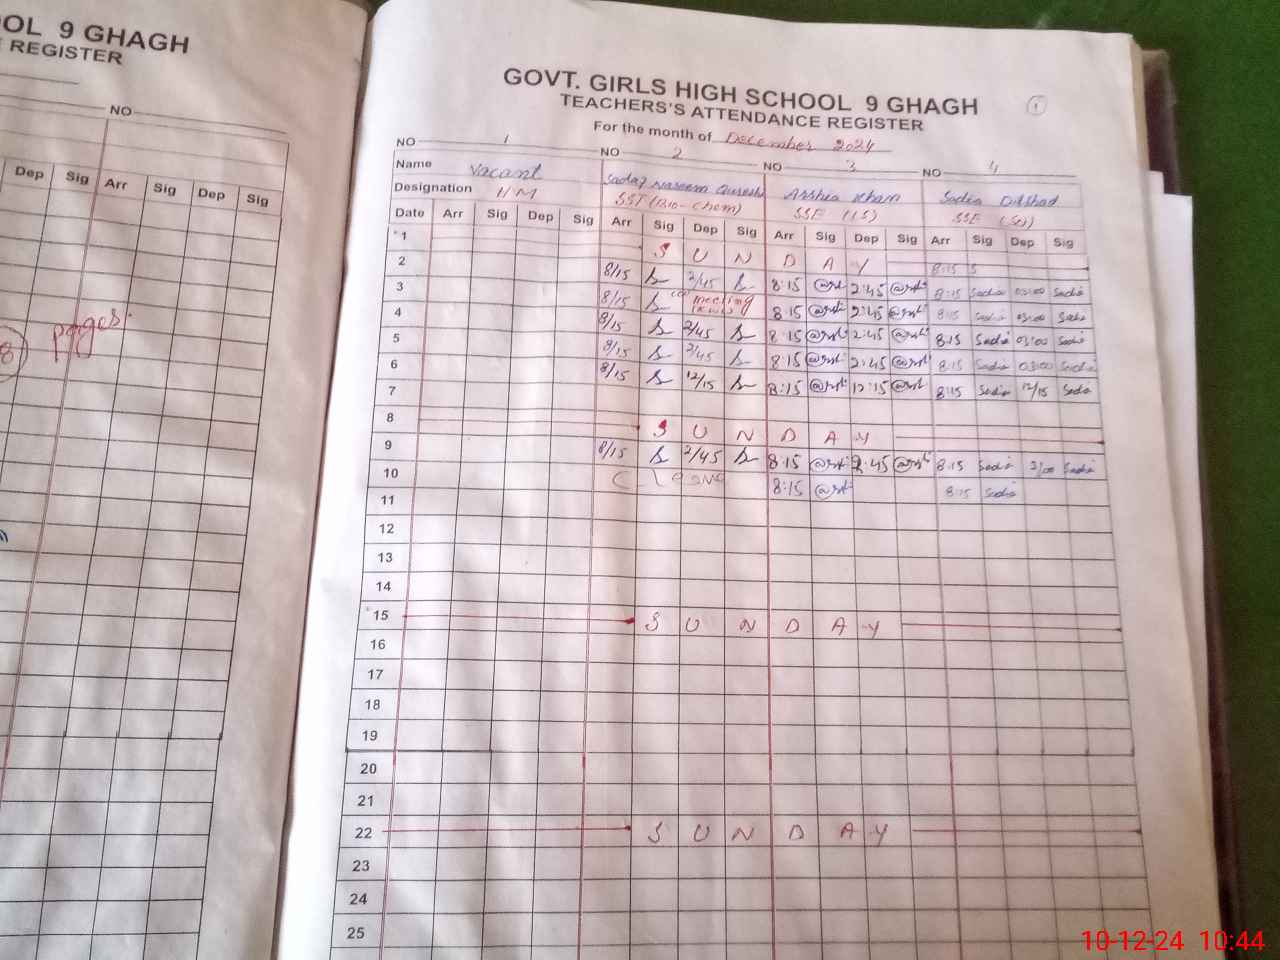 OOL 9 GHAGH
E REGISTER
NO
Dep Sig Arr Sig Dep Sig
8 pages.
GOVT. GIRLS HIGH SCHOOL 9 GHAGH
1
TEACHERS'S ATTENDANCE REGISTER
For the month of December 2024
NO 1 NO 2 NO 3 NO 4
Name Vacant Sadaf Naseem Qureshi Arshia Kham Sadia Dilshad
Designation HM SST (Bio-Chem) SSE (IS) SSE (Sci)
Date Arr Sig Dep Sig Arr Sig Dep Sig Arr Sig Dep Sig Arr Sig Dep Sig
1 S U N D A Y
2 8/15 2/45 8:15 2:45 8:15 S
3 8/15 meeting 8:15 2:45 8:15 Sadia 03:00 Sadia
4 8/15 2/45 8:15 2:45 8:15 Sadia 03:00 Sadia
5 8/15 2/45 8:15 2:45 8:15 Sadia 03:00 Sadia
6 8/15 12/15 8:15 12:15 8:15 Sadia 03:00 Sadia
7 8:15 Sadia 12/15 Sadia
8 S U N D A Y
9 8/15 2/45 8:15 2:45 8:15 Sadia 3/00 Sadia
10 C Leave 8:15 8:15 Sadia
11
12
13
14
15 S U N D A Y
16
17
18
19
20
21
22 S U N D A Y
23
24
25
10-12-24 10:44